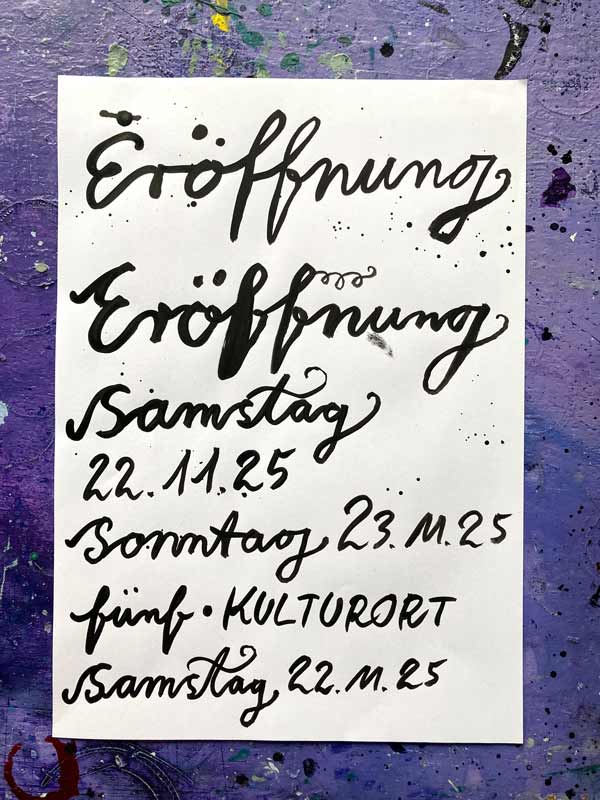 Eröffnung
Eröffnung
Samstag
22.11.25
Sonntag 23.11.25
fünf · KULTURORT
Samstag 22.11.25